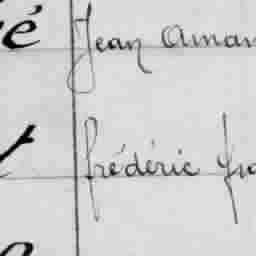 é Jean Aman
t frédéric fra